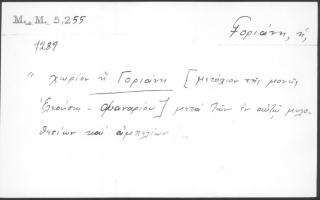 M. M. 5.255
Γοριάνη, ή,
1289
" χωρίον ἡ Γοριάνη [μετόχιον τῆς μονῆς
Ἐλεούσης - Φαναρίου] μετά τῶν ἐν αὐτῷ μυλο-
θεσίων καί ἀμπελίων "